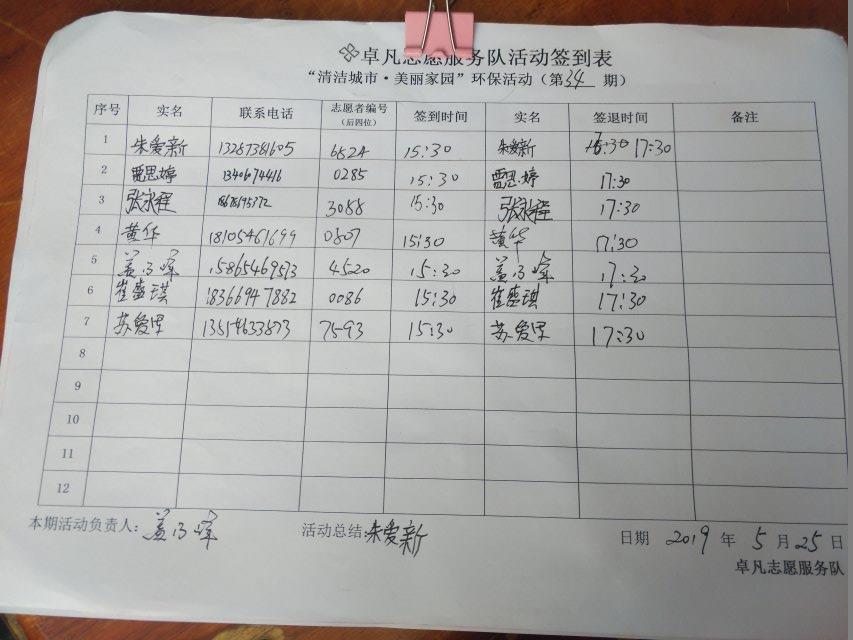 卓凡志愿服务队活动签到表
“清洁城市·美丽家园”环保活动（第34期）
序号 实名 联系电话 志愿者编号（后四位） 签到时间 实名 签退时间 备注
1 朱爱新 13287381605 6824 15:30 朱爱新 17:30
2 贾思婷 0285 15:30 贾思婷 17:30
3 张永程 3088 15:30 张永程 17:30
4 黄华 18105461699 0807 15:30 黄华 17:30
5 盖乃峰 15865469573 4520 15:30 盖乃峰 17:30
6 崔盛琪 18366947882 0086 15:30 崔盛琪 17:30
7 苏爱军 13514633873 7593 15:30 苏爱军 17:30
8
9
10
11
12
本期活动负责人：盖乃峰 活动总结：朱爱新 日期 2019 年 5 月 25 日
卓凡志愿服务队